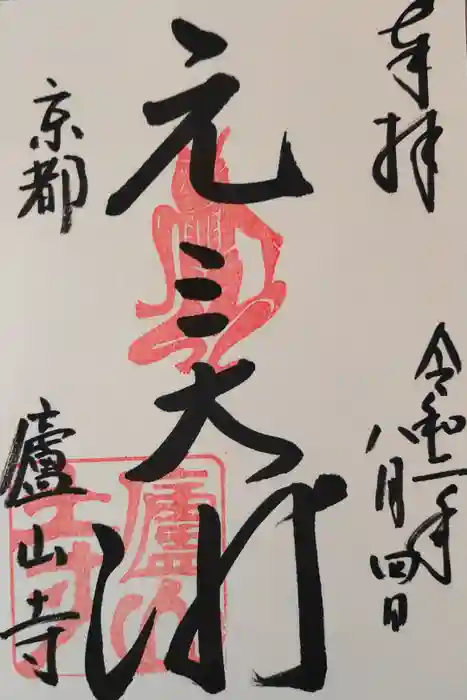 奉拝
令和二年
八月四日
元三大師
京都
廬山寺
廬山寺